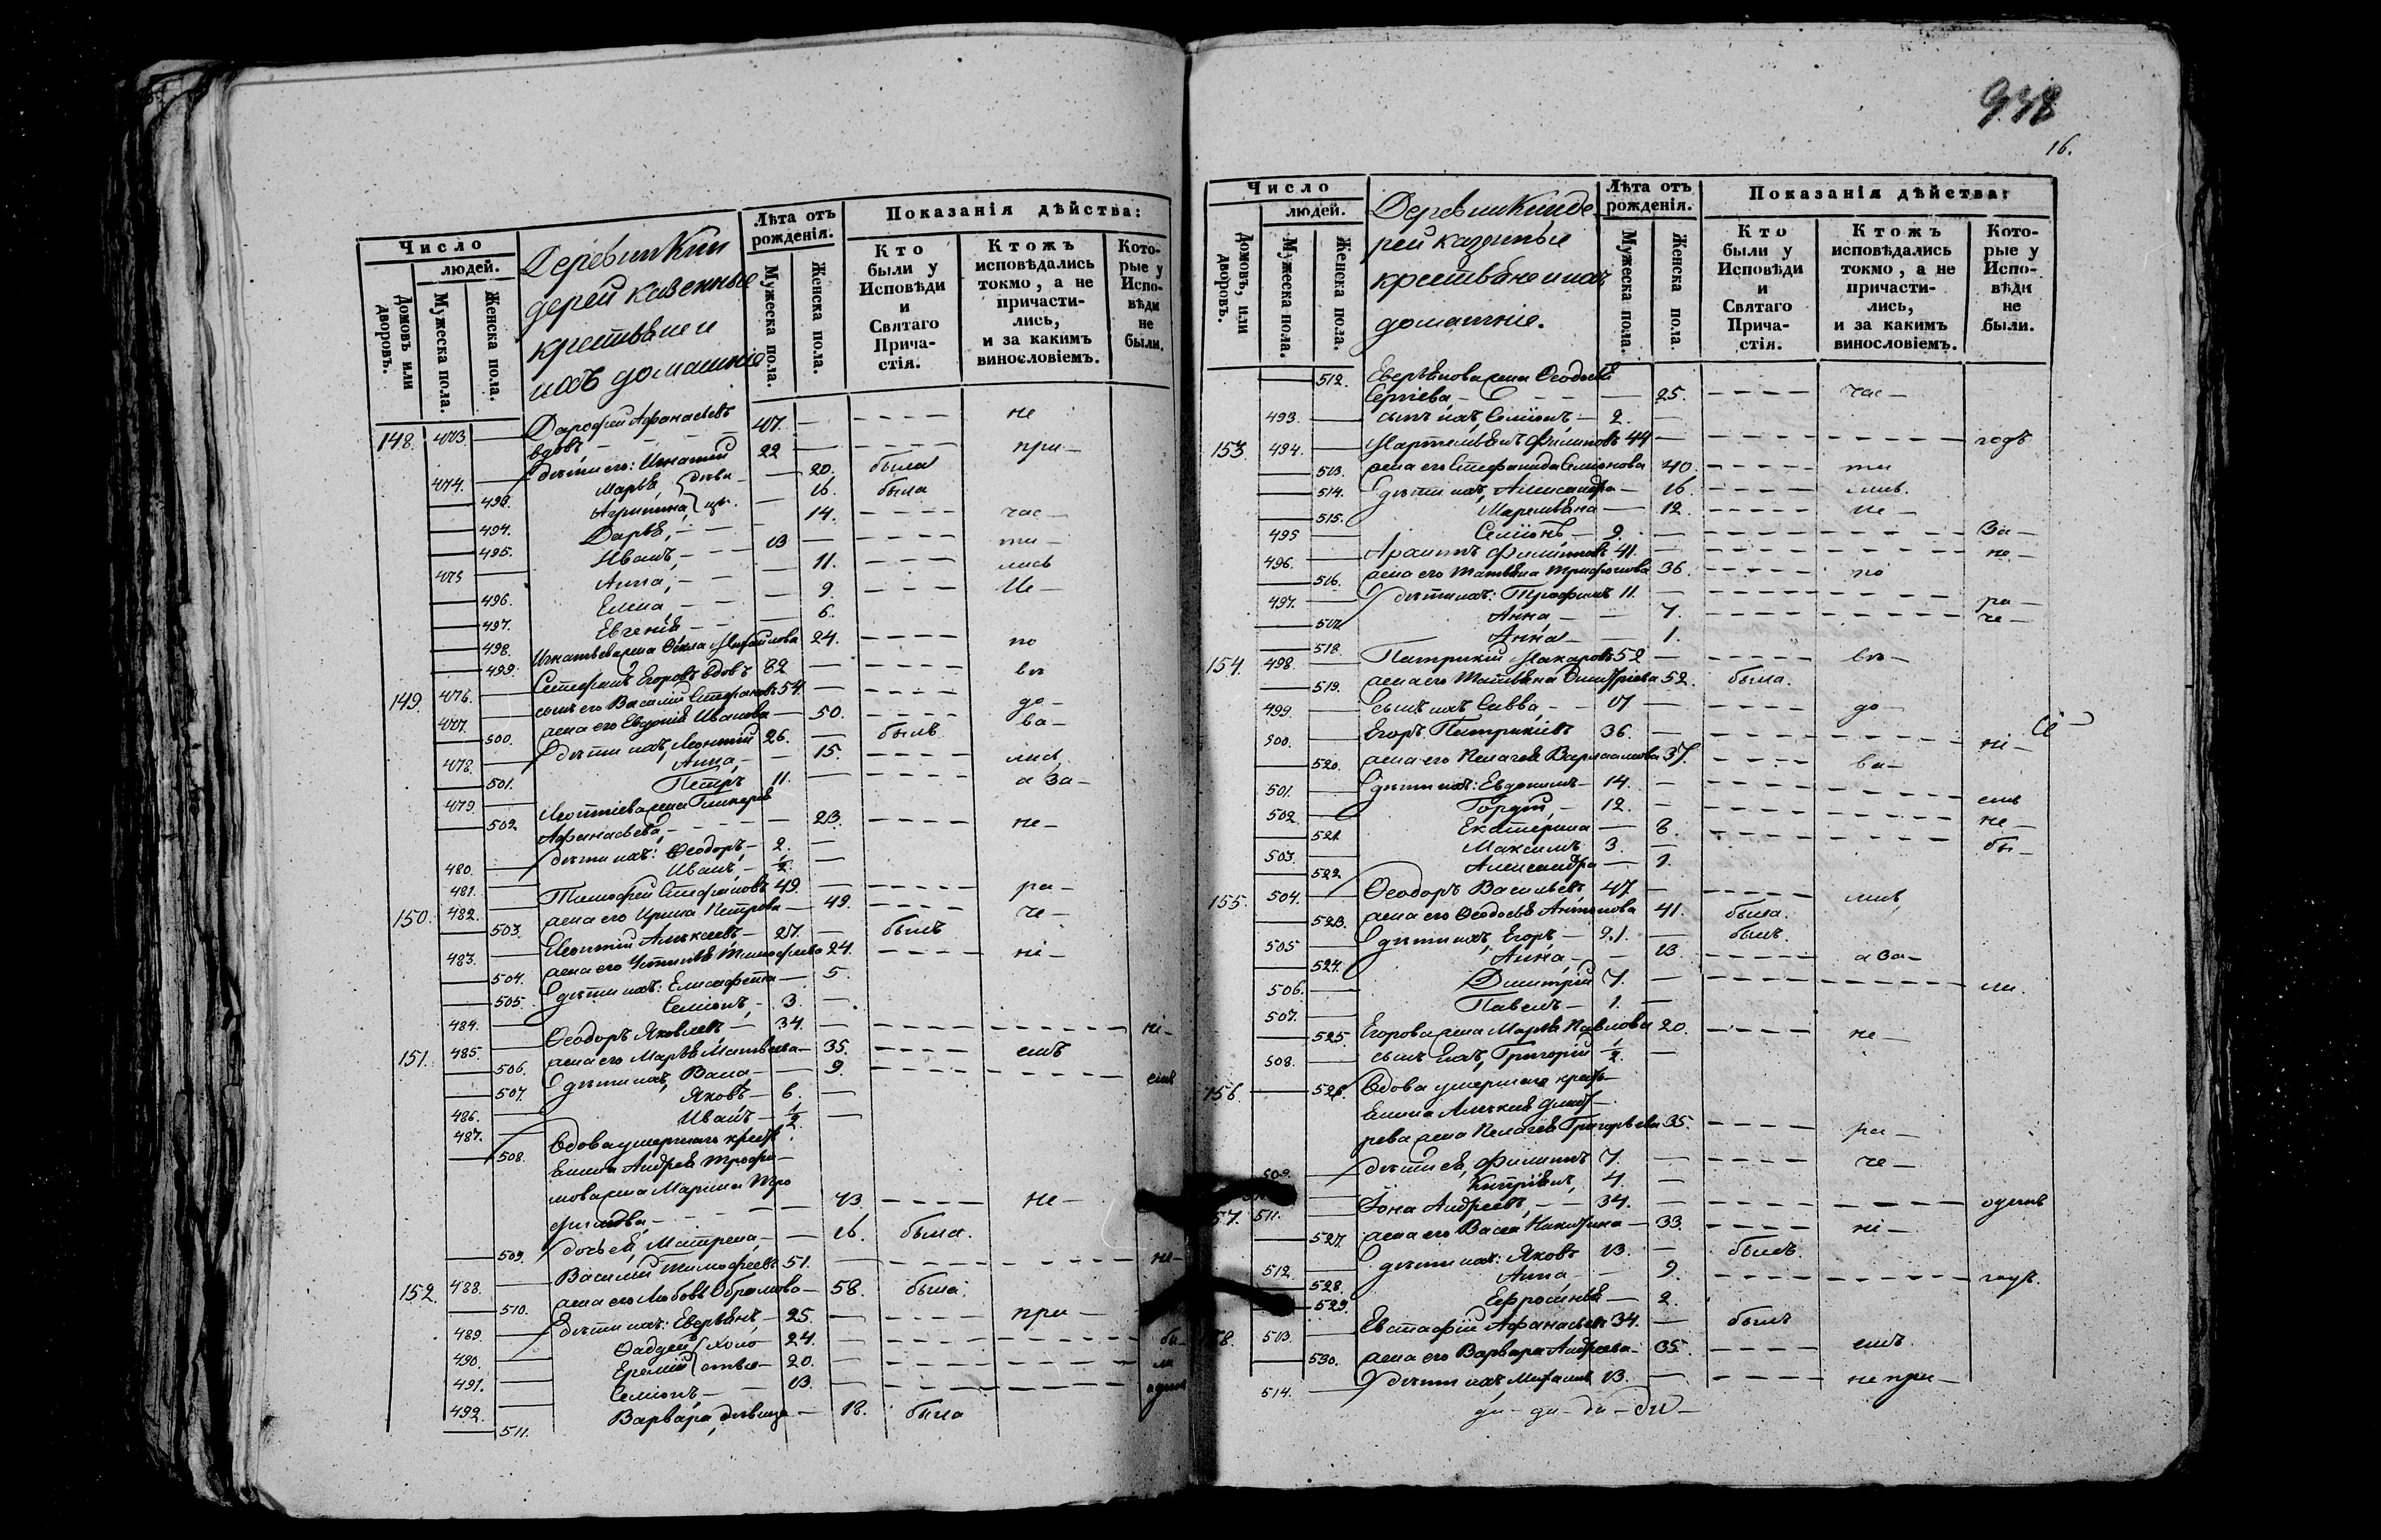 Число
людей.
Домовъ или дворовъ.
Мужеска пола.
Женска пола.
Деревни Кин
дерей казенные
крестьяне и
ихъ домашніе
Лѣта отъ рожденія.
Мужеска пола.
Женска пола.
Показанія дѣйства:
Кто были у Исповѣди и Святаго Прича- стія.
Ктожъ исповѣдались токмо, а не причасти- лись, и за какимъ винословіемъ.
Кото- рые у Испо- вѣди не были.
148. 473. Дарофей Афанасьевъ
вдовъ 47. не
474. дѣти его: Игнатій 22 при-
493. Марѳа, дѣви- 20. была
494. Агрипина, цы. 16. была
495. Дарья, 14. час-
475 Иванъ, 13 ти-
496. Анна, 11. лись
497. Елена, 9. Не-
498. Евгенія 6.
499. Игнатьева жена Ѳекла Михайлова 24. по
149. 476. Стефанъ Егоровъ вдовъ 82 во
477. сынъ его Василій Стефановъ 54. до-
500. жена его Евдокія Иванова 50. ва-
478. дѣти ихъ, Леонтій 26. былъ
501. Анна, 15. лись
479 Петръ 11. а За-
502 Леонтіева жена Гликерія
Афанасьева, 23. не-
480. дѣти ихъ: Ѳеодоръ 2.
481. Иванъ, 1/2.
150. 482. Тимофей Стефановъ 49. ра-
503. жена его Ирина Петрова 49. че-
483. Леонтій Алексеевъ 27. былъ
504. жена его Устинья Тимофеева 24. ні-
505. дѣти ихъ: Елисафета 5.
484. Семіонъ, 3.
151. 485. Ѳеодоръ Яковлевъ 34. ні-
506. жена его Марѳа Матвѣева 35. емъ
507. дѣти ихъ, Васса 9. емъ
486. Яковъ 6.
487. Иванъ 1/2
508. Вдова умершаго крест-
янина Андрея Трофи-
мова жена Марина Тро
фимова, 43. не-
509. дочь ея, Матрена 16. была.
152. 488. Василій Тимофеевъ 51. не-
510. жена его Любовь Абрамова 58. была.
489. дѣти ихъ: Еверьянъ 25. при-
490. Ѳаддей, холо- 24. бы-
491. Еремій, стые 20. ли
492. Семіонъ 13. одинъ
511. Варвара, дѣвица 18. была
938
16.
Число
людей.
Домовъ, или дворовъ.
Мужеска пола.
Женска пола.
Деревни Кинде-
рей казенные
крестьяне и ихъ
домашніе.
Лѣта отъ рожденія.
Мужеска пола.
Женска пола.
Показанія дѣйства:
Кто были у Исповѣди и Святаго Прича- стія.
Ктожъ исповѣдались токмо, а не причасти- лись, и за какимъ винословіемъ.
Кото- рые у Испо- вѣди не были.
512. Еверьянова жена Ѳеодосія
Сергіева 25. час-
493. сынъ ихъ, Семіонъ 2.
153. 494. Мартемьянъ Филиповъ 44 годъ
513. жена его Стефанида Семіонова 40. ти
514. дѣти ихъ, Александра 16. лись.
515. Маремьяна 12. не-
495 Семіонъ 9. За-
496. Архипъ Филиповъ 41. не-
516. жена его Татьяна Трифонова 36. по
497. дѣти ихъ: Трофимъ 11. ра-
517 Анна 7. че-
518. Анна 1.
154. 498. Патрикій Макаровъ 52 во-
519. жена его Татьяна Дмитріева 52. была.
499. сынъ ихъ Савва, 17 до-
500. Егоръ Патрикіевъ 36. ні-
520. жена его Пелагея Варлаамова 37. ва-
501. дѣти ихъ: Евдокимъ 14. емъ
502. Гордей, 12. не-
521. Екатерина 8. бы-
503. Максимъ 3.
522 Александра 1.
155. 504. Ѳеодоръ Васильевъ 47 лись,
523. жена его Ѳеодосья Антонова 41. была.
505 дѣти ихъ, Егоръ 21. былъ.
524. Анна, 13. а За-
506. Димитрій 7. ли.
507. Павелъ 1.
525. Егорова жена Марѳа Павлова 20. не-
508. сынъ ихъ, Григорій 1/2.
156. 526. Вдова умершаго крест-
янина Алексея Дмит-
рева жена Пелагея Григорьева 35. ра-
509. дѣти ея, Филипъ 7. че-
Кипріянъ, 4.
57. 511. Іона Андреевъ, 34. одинъ
527. жена его Васса Никитина 33. ні-
512. дѣти ихъ: Яковъ 13. былъ.
528. Анна 9. годъ.
529. Ефросинья 2.
158. 513 Евстафій Афанасьевъ 34. былъ
530. жена его Варвара Андреева 35. емъ
514. дѣти ихъ Михаилъ 13. не при-